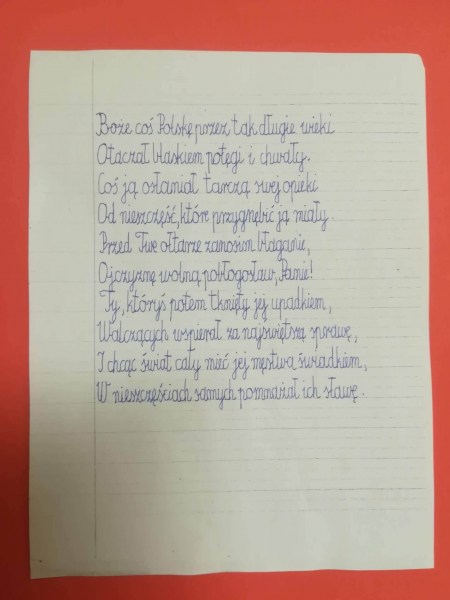 Boże coś Polskę przez tak długie wieki
Otaczał blaskiem potęgi i chwały.
Coś ją osłaniał tarczą swej opieki
Od nieszczęść, które przygnębić ją miały.
Przed Twe ołtarze zanosim błaganie,
Ojczyznę wolną pobłogosław, Panie!
Ty, któryś potem tknięty jej upadkiem,
Walczących wspierał za najświętszą sprawę,
I chcąc świat cały mieć jej męstwa świadkiem,
W nieszczęściach samych pomnażał ich sławę.